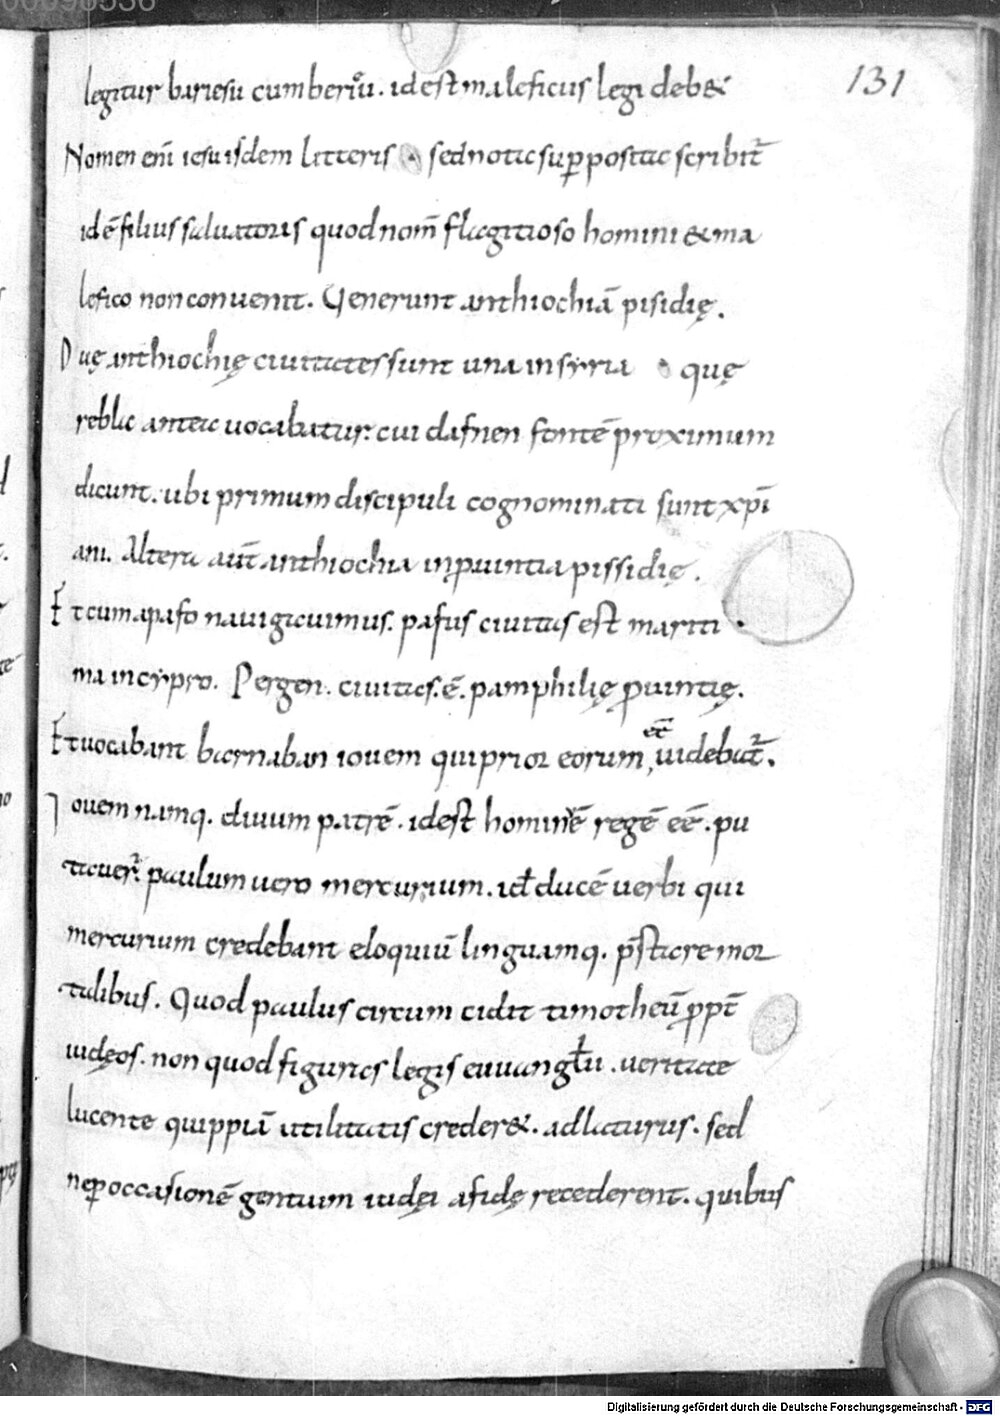 131
legitur bariesu cum beriu͛. id est maleficus legi deb&
Nomen eni͂ iesu isdem litteris sed notae sup̲ postae scribit᷑
id ē filius saluatoris quod nom̄ flagitioso homini & ma
lefico non conuenit. Uenerunt anthiochiā pisidię.
Duę anthiochię ciuitates sunt una in syria quę
rebla antea uocabatur. cui dafnen fontē proximum
dicunt. ubi primum discipuli cognominati sunt xp̄i
ani. Altera aut̄ anthiochia in ꝓuintia pissidię.
Et cum a pafo nauigauimus. pafus ciuitas est mariti
ma in cypro. Pergen. ciuitas. ē. pamphilię ꝓuintię.
Et uocabant barnaban iouem qui prior eorum, eē uidebat᷑.
Iouem namq. diuum patrē. id est hominē regē eē. pu
tauer᷑. paulum uero mercurium. id ł ducē uerbi qui
mercurium credebant eloquiū linguamq. p̄stare mor
talibus. Quod paulus circumcidit timotheū ꝓpt̄
iudęos. non quod figuras legis euuangłii. ueritate
lucente quippiā utilitatis creder&. adlaturus. sed
ne ꝑ occasionē gentium iudęi a fidę recederent. quibus
Digitalisierung gefördert durch die Deutsche Forschungsgemeinschaft - DFG